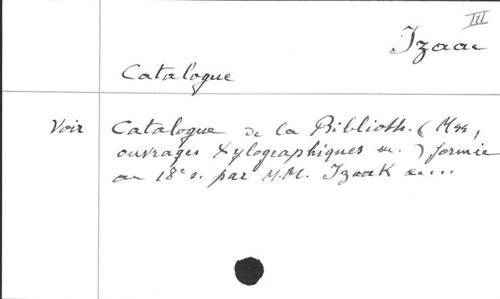 III
Izaac
Catalogue
Voir Catalogue de la Biblioth. (Mss,
ouvrages Xylographiques &c.) formée
au 18e s. par M.M. Izaak &....